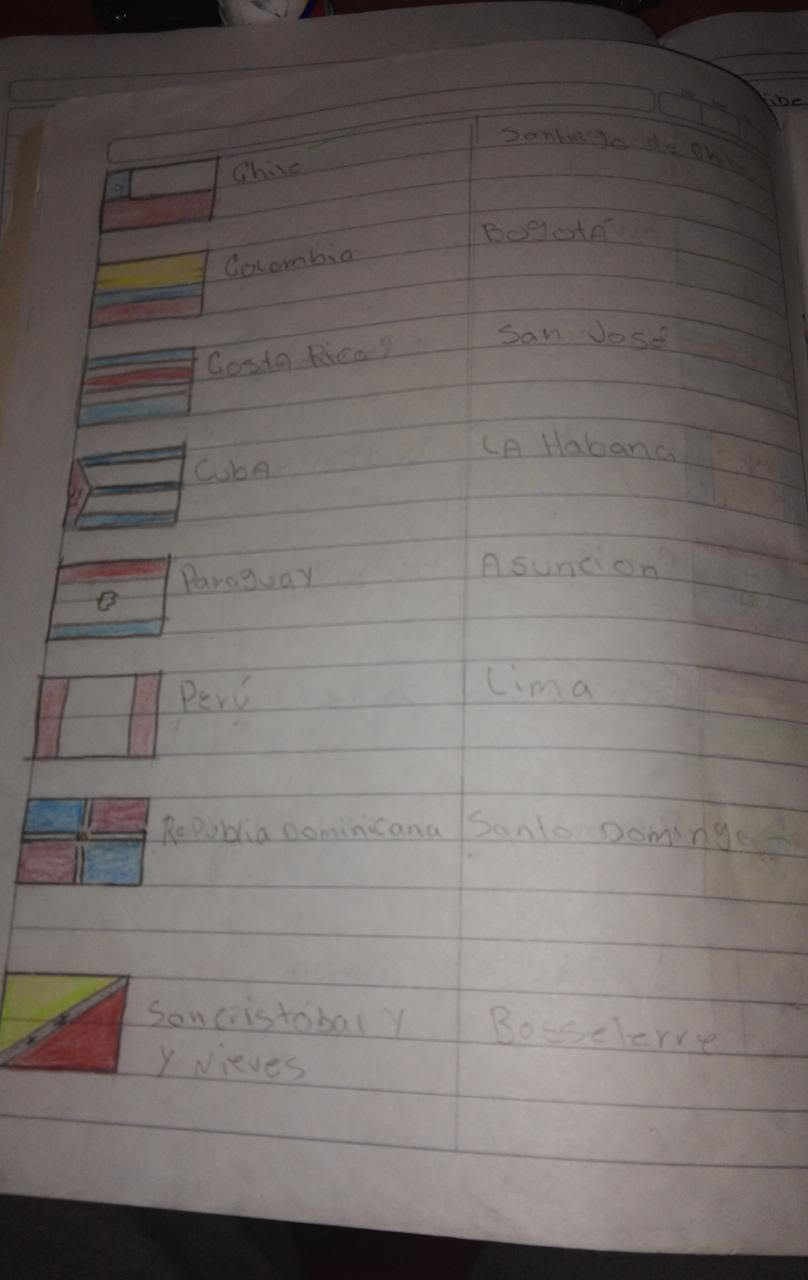 Chile
Santiago de Chile
Colombia
BogotA
CostA Rica
San José
CubA
LA Habana
Paraguay
Asuncion
Perú
Lima
RePublia Dominicana
Santo Domingo
San cristobal Y
Y Nieves